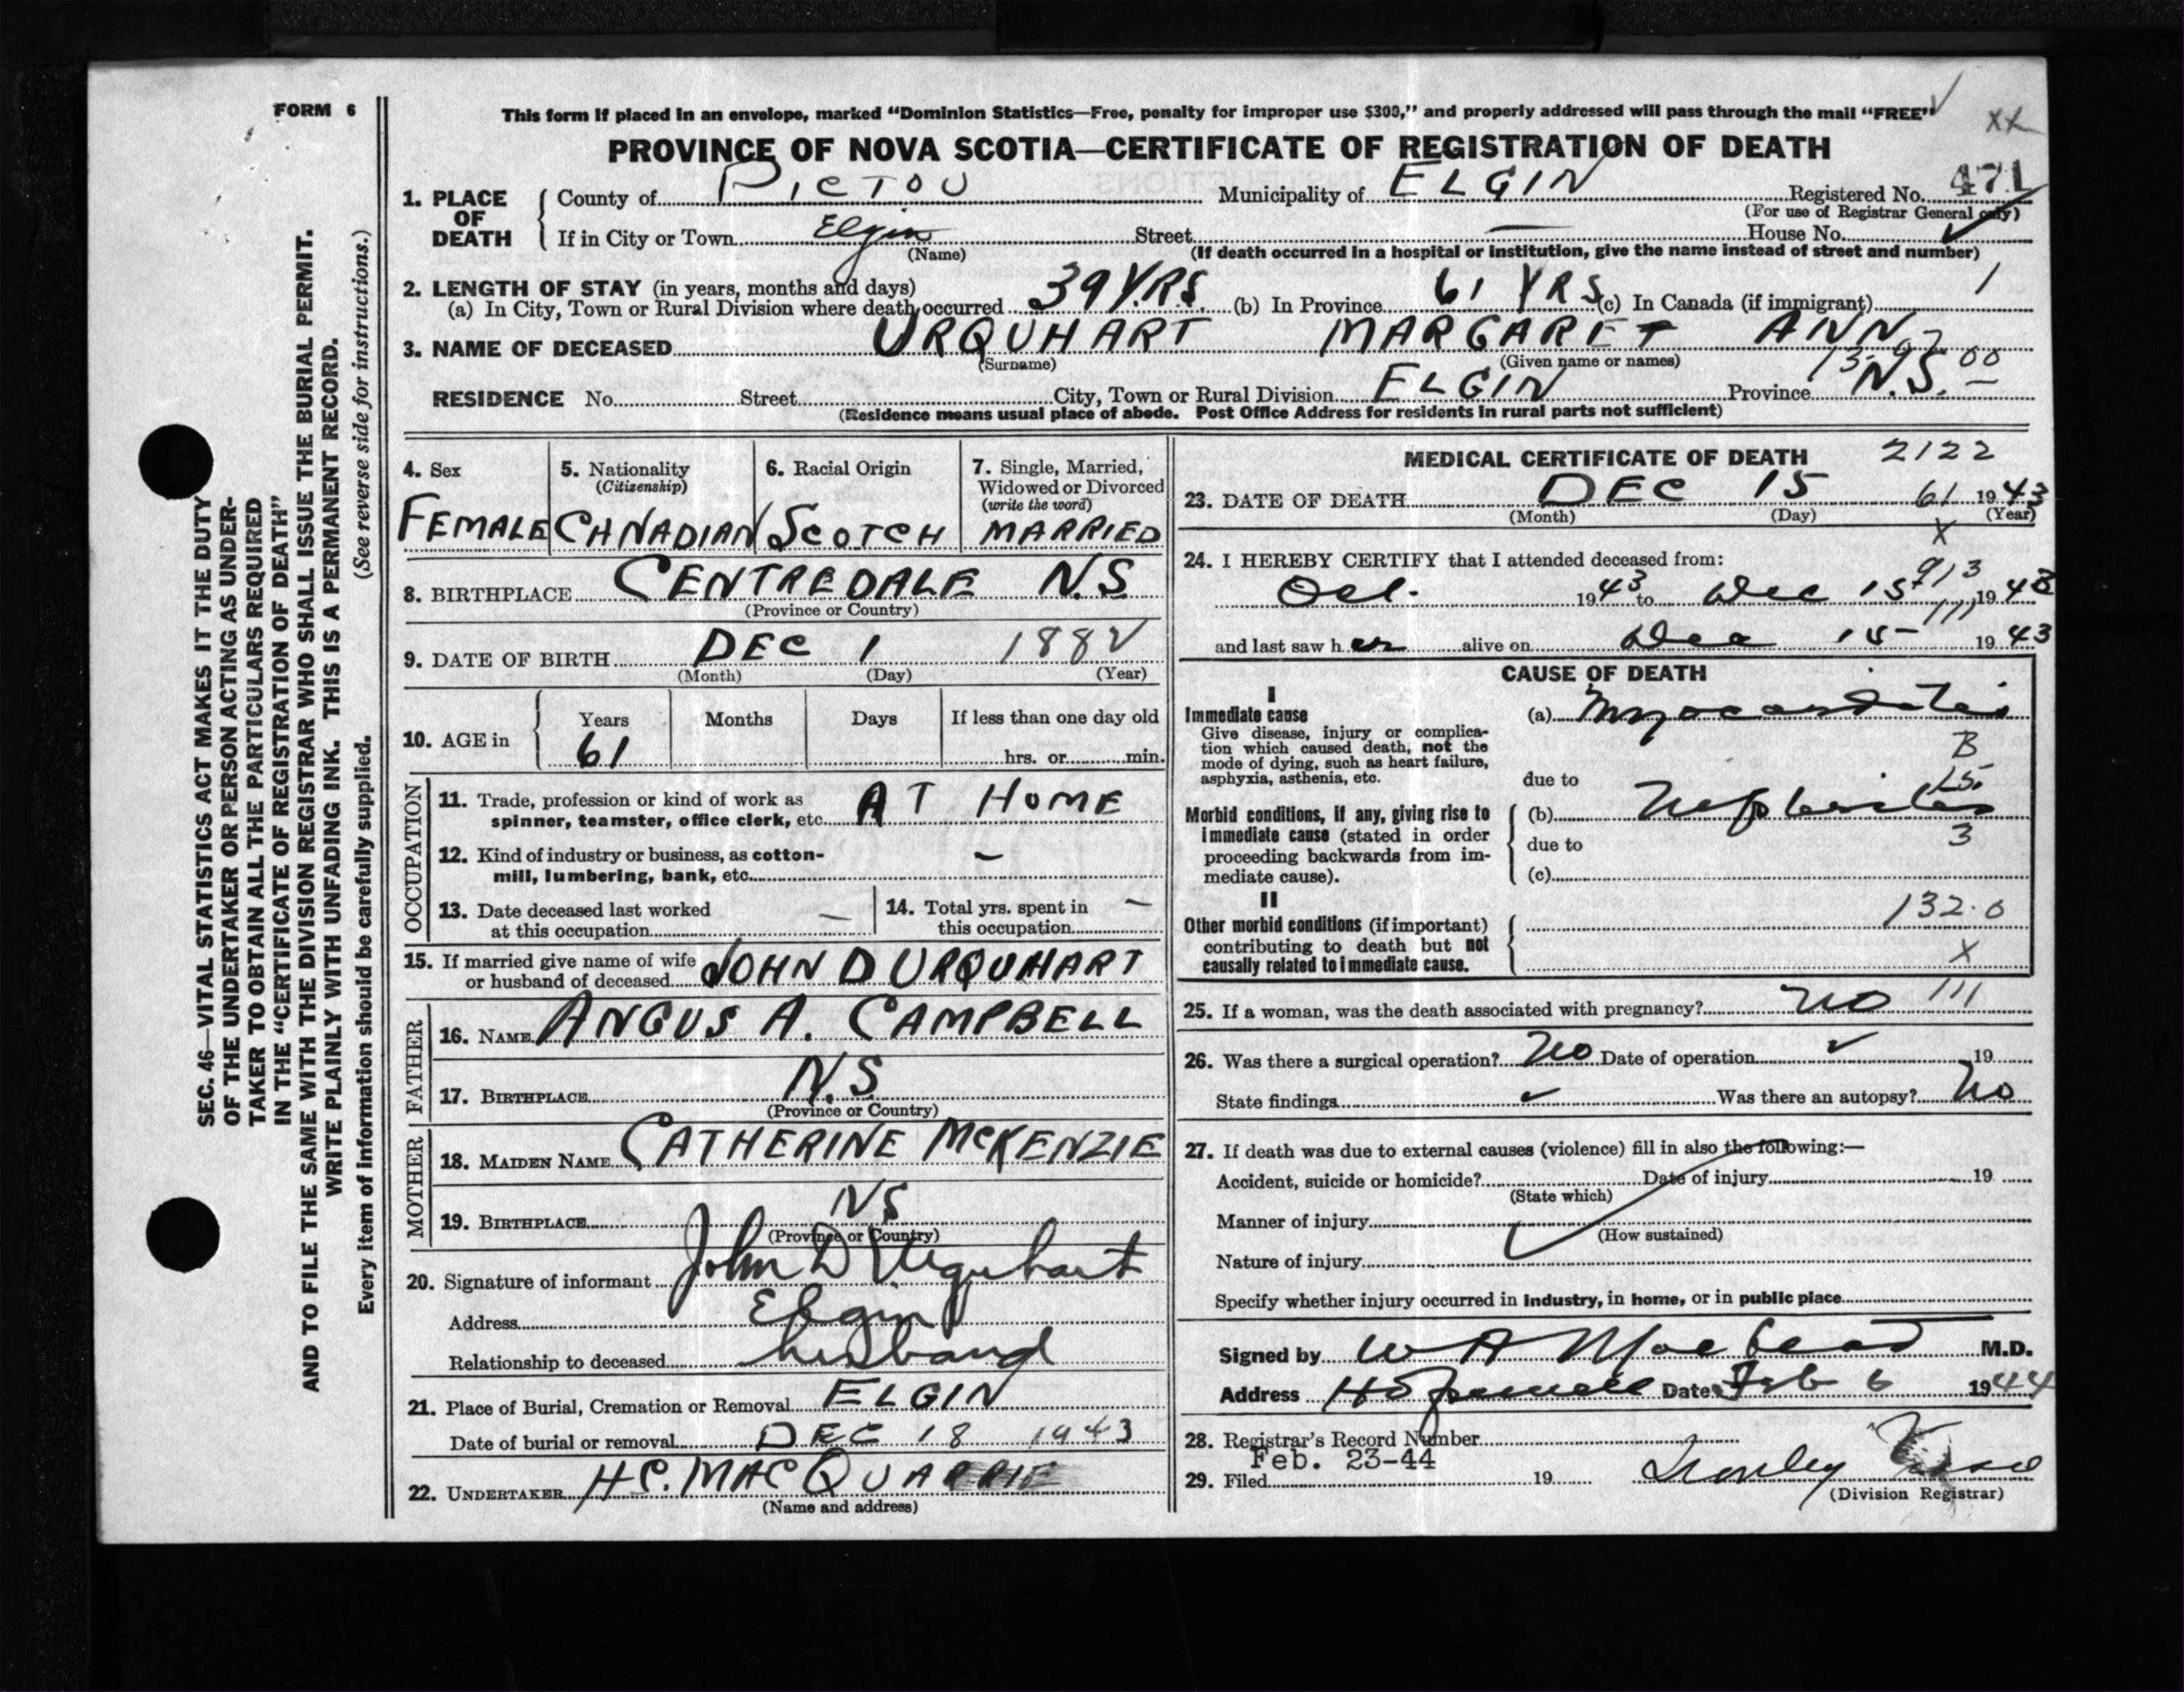 FORM 6
This form if placed in an envelope, marked “Dominion Statistics—Free, penalty for improper use $300,” and properly addressed will pass through the mail “FREE”
XX
PROVINCE OF NOVA SCOTIA—CERTIFICATE OF REGISTRATION OF DEATH
1. PLACE OF DEATH
County of PICTOU Municipality of ELGIN Registered No. 471
(For use of Registrar General only)
If in City or Town Elgin Street — House No.
(Name) (If death occurred in a hospital or institution, give the name instead of street and number)
2. LENGTH OF STAY (in years, months and days)
(a) In City, Town or Rural Division where death occurred 39 YRS. (b) In Province 61 YRS (c) In Canada (if immigrant) 1
3. NAME OF DECEASED URQUHART MARGARET ANN
(Surname) (Given name or names)
RESIDENCE No. Street City, Town or Rural Division ELGIN Province N.S.
(Residence means usual place of abode. Post Office Address for residents in rural parts not sufficient)
4. Sex FEMALE
5. Nationality (Citizenship) CANADIAN
6. Racial Origin SCOTCH
7. Single, Married, Widowed or Divorced (write the word) MARRIED
8. BIRTHPLACE CENTREDALE N.S.
(Province or Country)
9. DATE OF BIRTH DEC 1 1882
(Month) (Day) (Year)
10. AGE in Years Months Days If less than one day old
61 hrs. or min.
OCCUPATION
11. Trade, profession or kind of work as spinner, teamster, office clerk, etc. AT HOME
12. Kind of industry or business, as cotton-mill, lumbering, bank, etc. —
13. Date deceased last worked at this occupation —
14. Total yrs. spent in this occupation —
15. If married give name of wife or husband of deceased JOHN D URQUHART
FATHER
16. NAME ANGUS A. CAMPBELL
17. BIRTHPLACE N.S
(Province or Country)
MOTHER
18. MAIDEN NAME CATHERINE McKENZIE
19. BIRTHPLACE NS
(Province or Country)
20. Signature of informant John D Urquhart
Address Elgin
Relationship to deceased husband
21. Place of Burial, Cremation or Removal ELGIN
Date of burial or removal DEC 18 1943
22. UNDERTAKER H.C. MACQUARRIE
(Name and address)
MEDICAL CERTIFICATE OF DEATH 2122
23. DATE OF DEATH DEC 15 61 1943
(Month) (Day) (Year)
X
24. I HEREBY CERTIFY that I attended deceased from:
913
Oct. 1943 to Dec 15 1943
111
and last saw her alive on Dec 15 1943
CAUSE OF DEATH
I
Immediate cause
Give disease, injury or complication which caused death, not the mode of dying, such as heart failure, asphyxia, asthenia, etc.
(a) Myocarditis
B
due to 15
Morbid conditions, if any, giving rise to immediate cause (stated in order proceeding backwards from immediate cause).
(b) Nephritis
due to 3
(c)
II
Other morbid conditions (if important) contributing to death but not causally related to immediate cause.
132.0
X
25. If a woman, was the death associated with pregnancy? No 111
26. Was there a surgical operation? No Date of operation 19
State findings Was there an autopsy? No
27. If death was due to external causes (violence) fill in also the following:—
Accident, suicide or homicide? Date of injury 19
(State which)
Manner of injury
(How sustained)
Nature of injury
Specify whether injury occurred in industry, in home, or in public place
Signed by W A MacLeod M.D.
Address Hopewell Date Feb 6 1944
28. Registrar's Record Number
Feb. 23-44
29. Filed 19
(Division Registrar)
SEC. 46—VITAL STATISTICS ACT MAKES IT THE DUTY
OF THE UNDERTAKER OR PERSON ACTING AS UNDER-
TAKER TO OBTAIN ALL THE PARTICULARS REQUIRED
IN THE “CERTIFICATE OF REGISTRATION OF DEATH”
AND TO FILE THE SAME WITH THE DIVISION REGISTRAR WHO SHALL ISSUE THE BURIAL PERMIT.
WRITE PLAINLY WITH UNFADING INK. THIS IS A PERMANENT RECORD.
Every item of information should be carefully supplied. (See reverse side for instructions.)